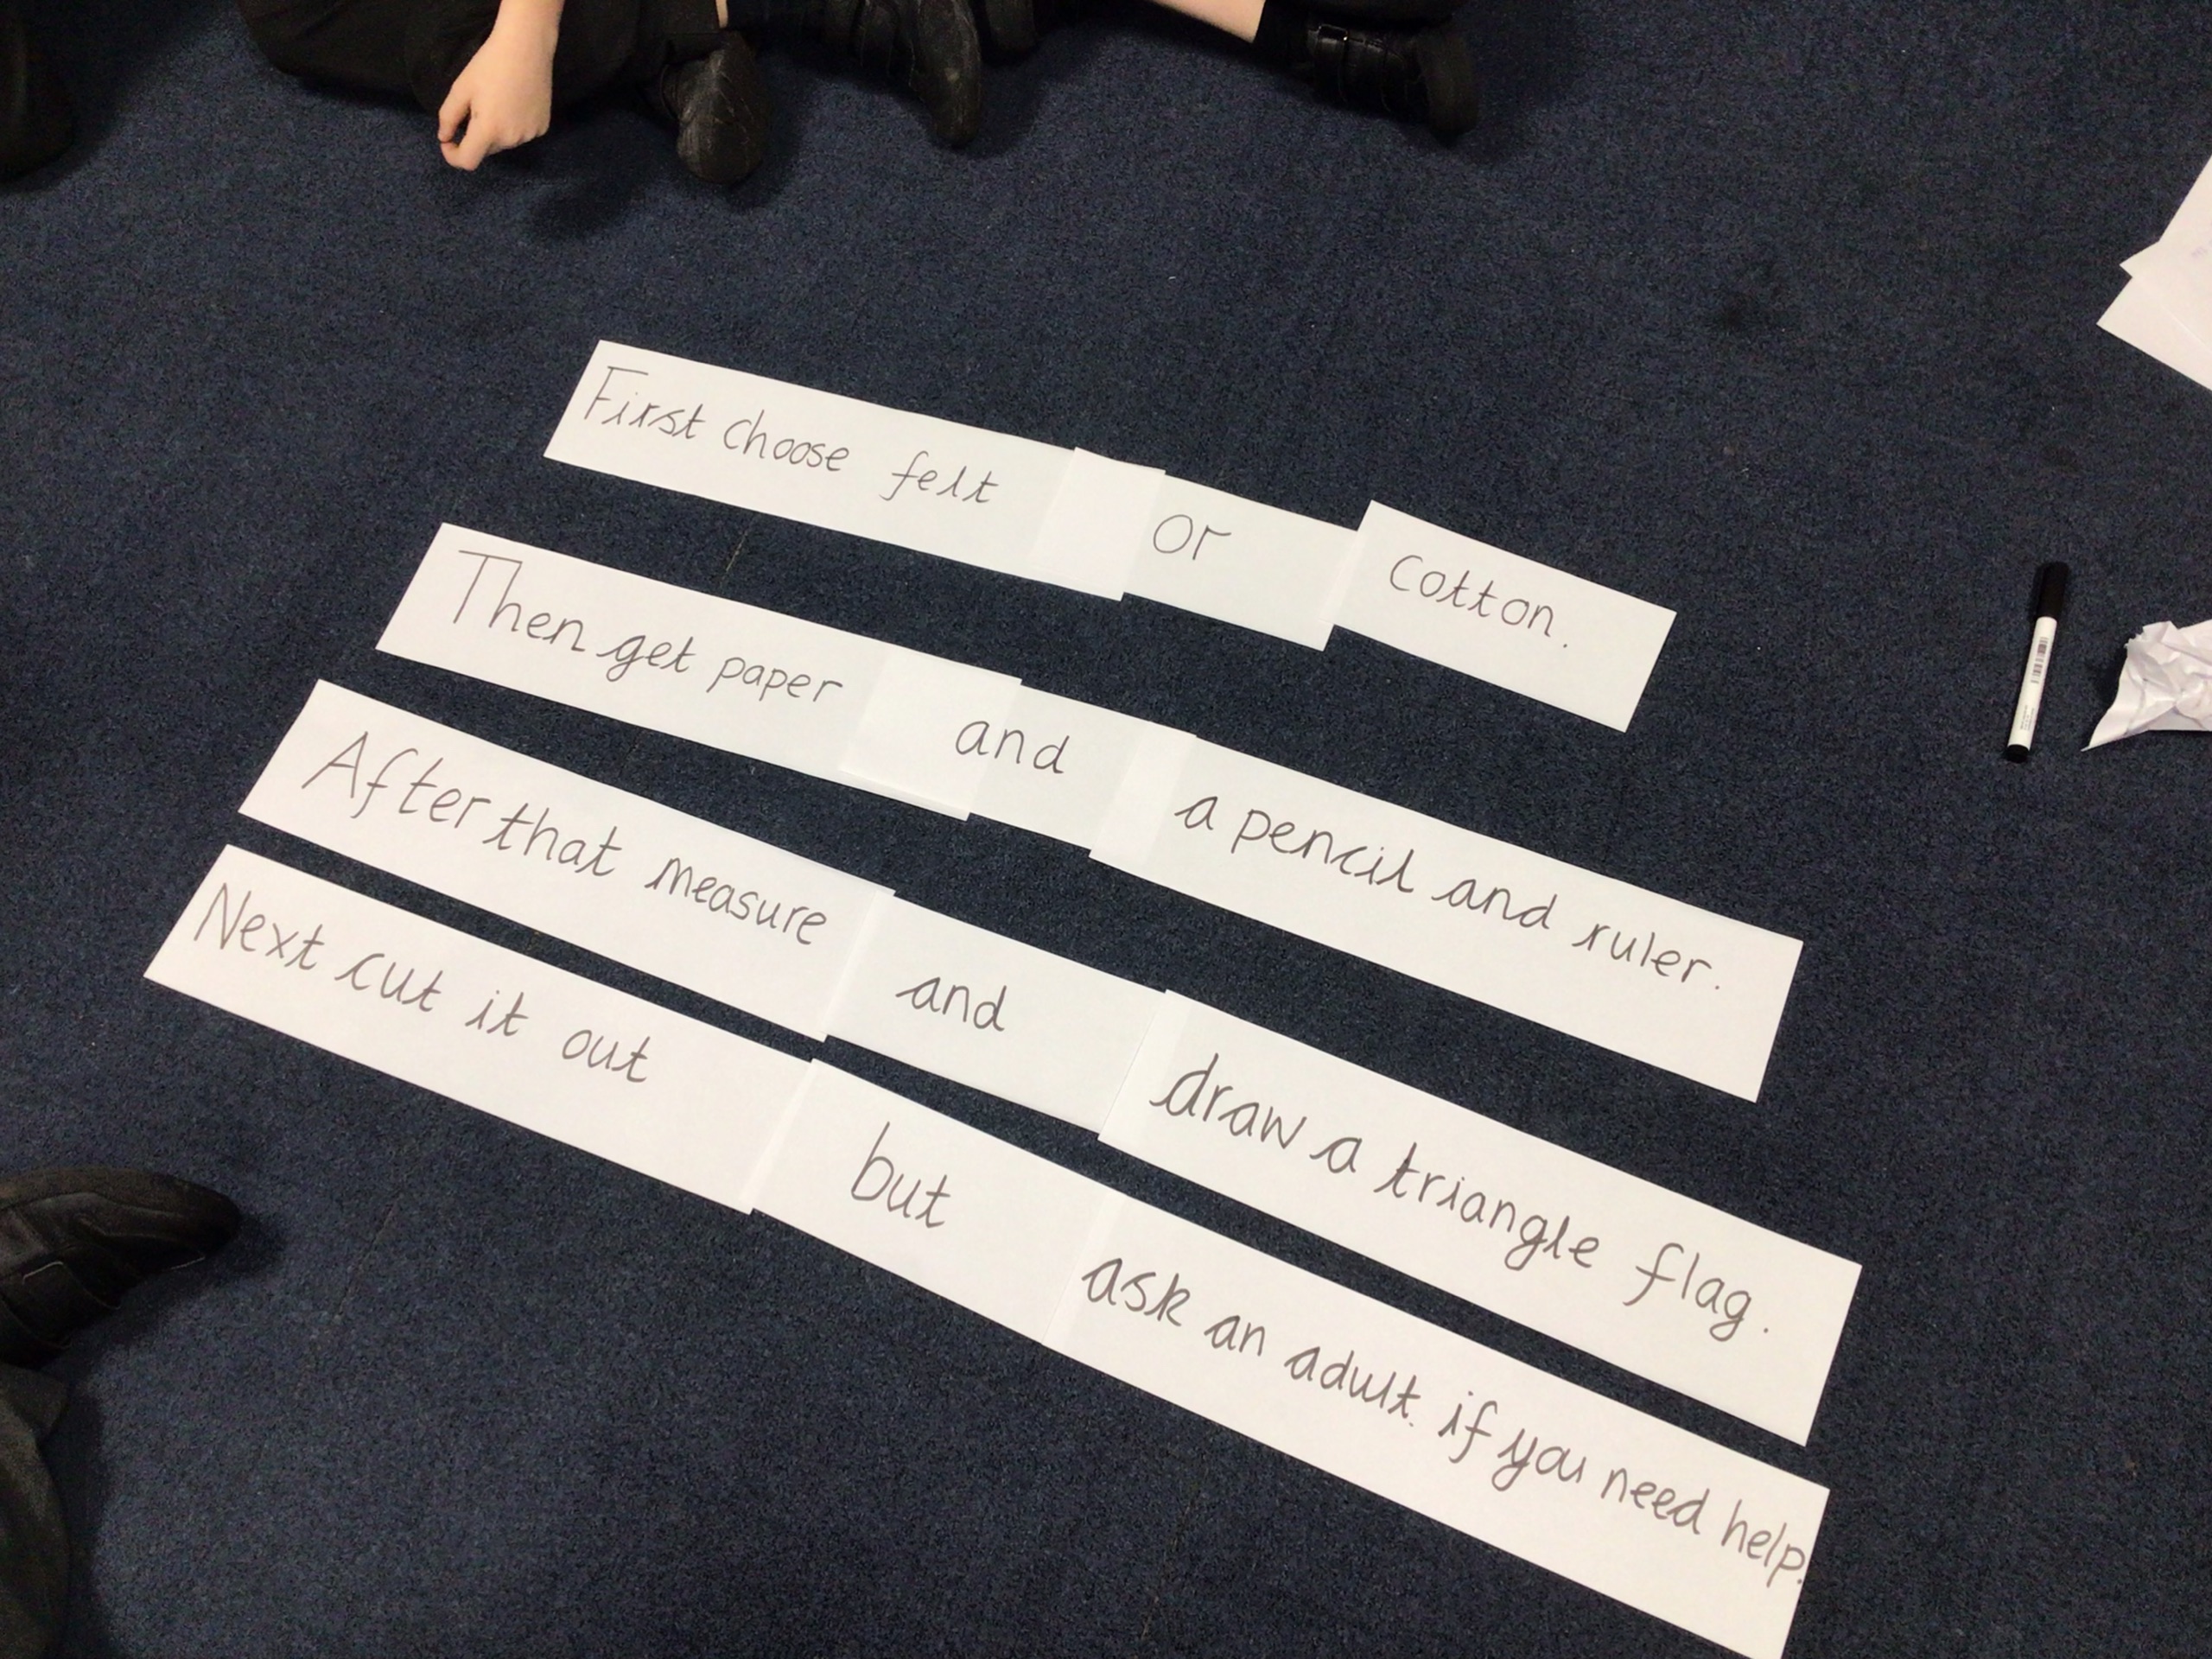 First choose felt or cotton.
Then get paper and a pencil and ruler.
After that measure and draw a triangle flag.
Next cut it out but ask an adult. if you need help.